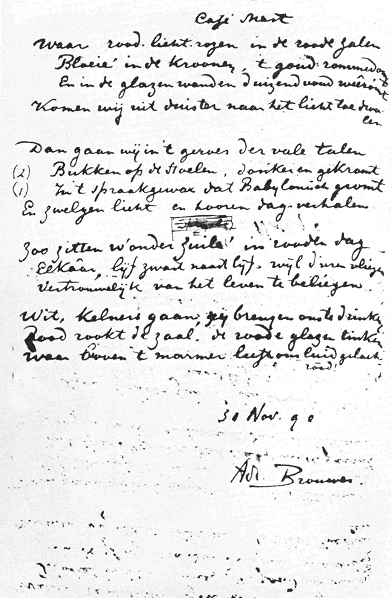 Café Mast
Waar rood-licht-rozen in de roode zalen
Bloeie' in de kroonen, 't goud rommedomt
En in de glazen wanden duizendvoud
Komen wij uit duister naar het licht toe dwa
len
Dan gaan wij in 't gerves der vale talen
(2) Bukken op de stoelen, donker en gekromt
(1) In 't spraakgewar dat Babylonisch gromt
En zwelgen licht en hooren dag-verhalen.
Zoo zitten w' onder zuile' in rooden dag
Elkâar, lijf zwart naast lijf. wijl d'uren vliegen
Vertrouwelijk van het leven te beliegen
Wit, kelners gaan, zij brengen ons te drinken
Rood rookt de zaal, de roode glazen klinken
Waar boven 't marmer leeft ons luid gelach.
rood
30 Nov. 90
Ad. Brouwer